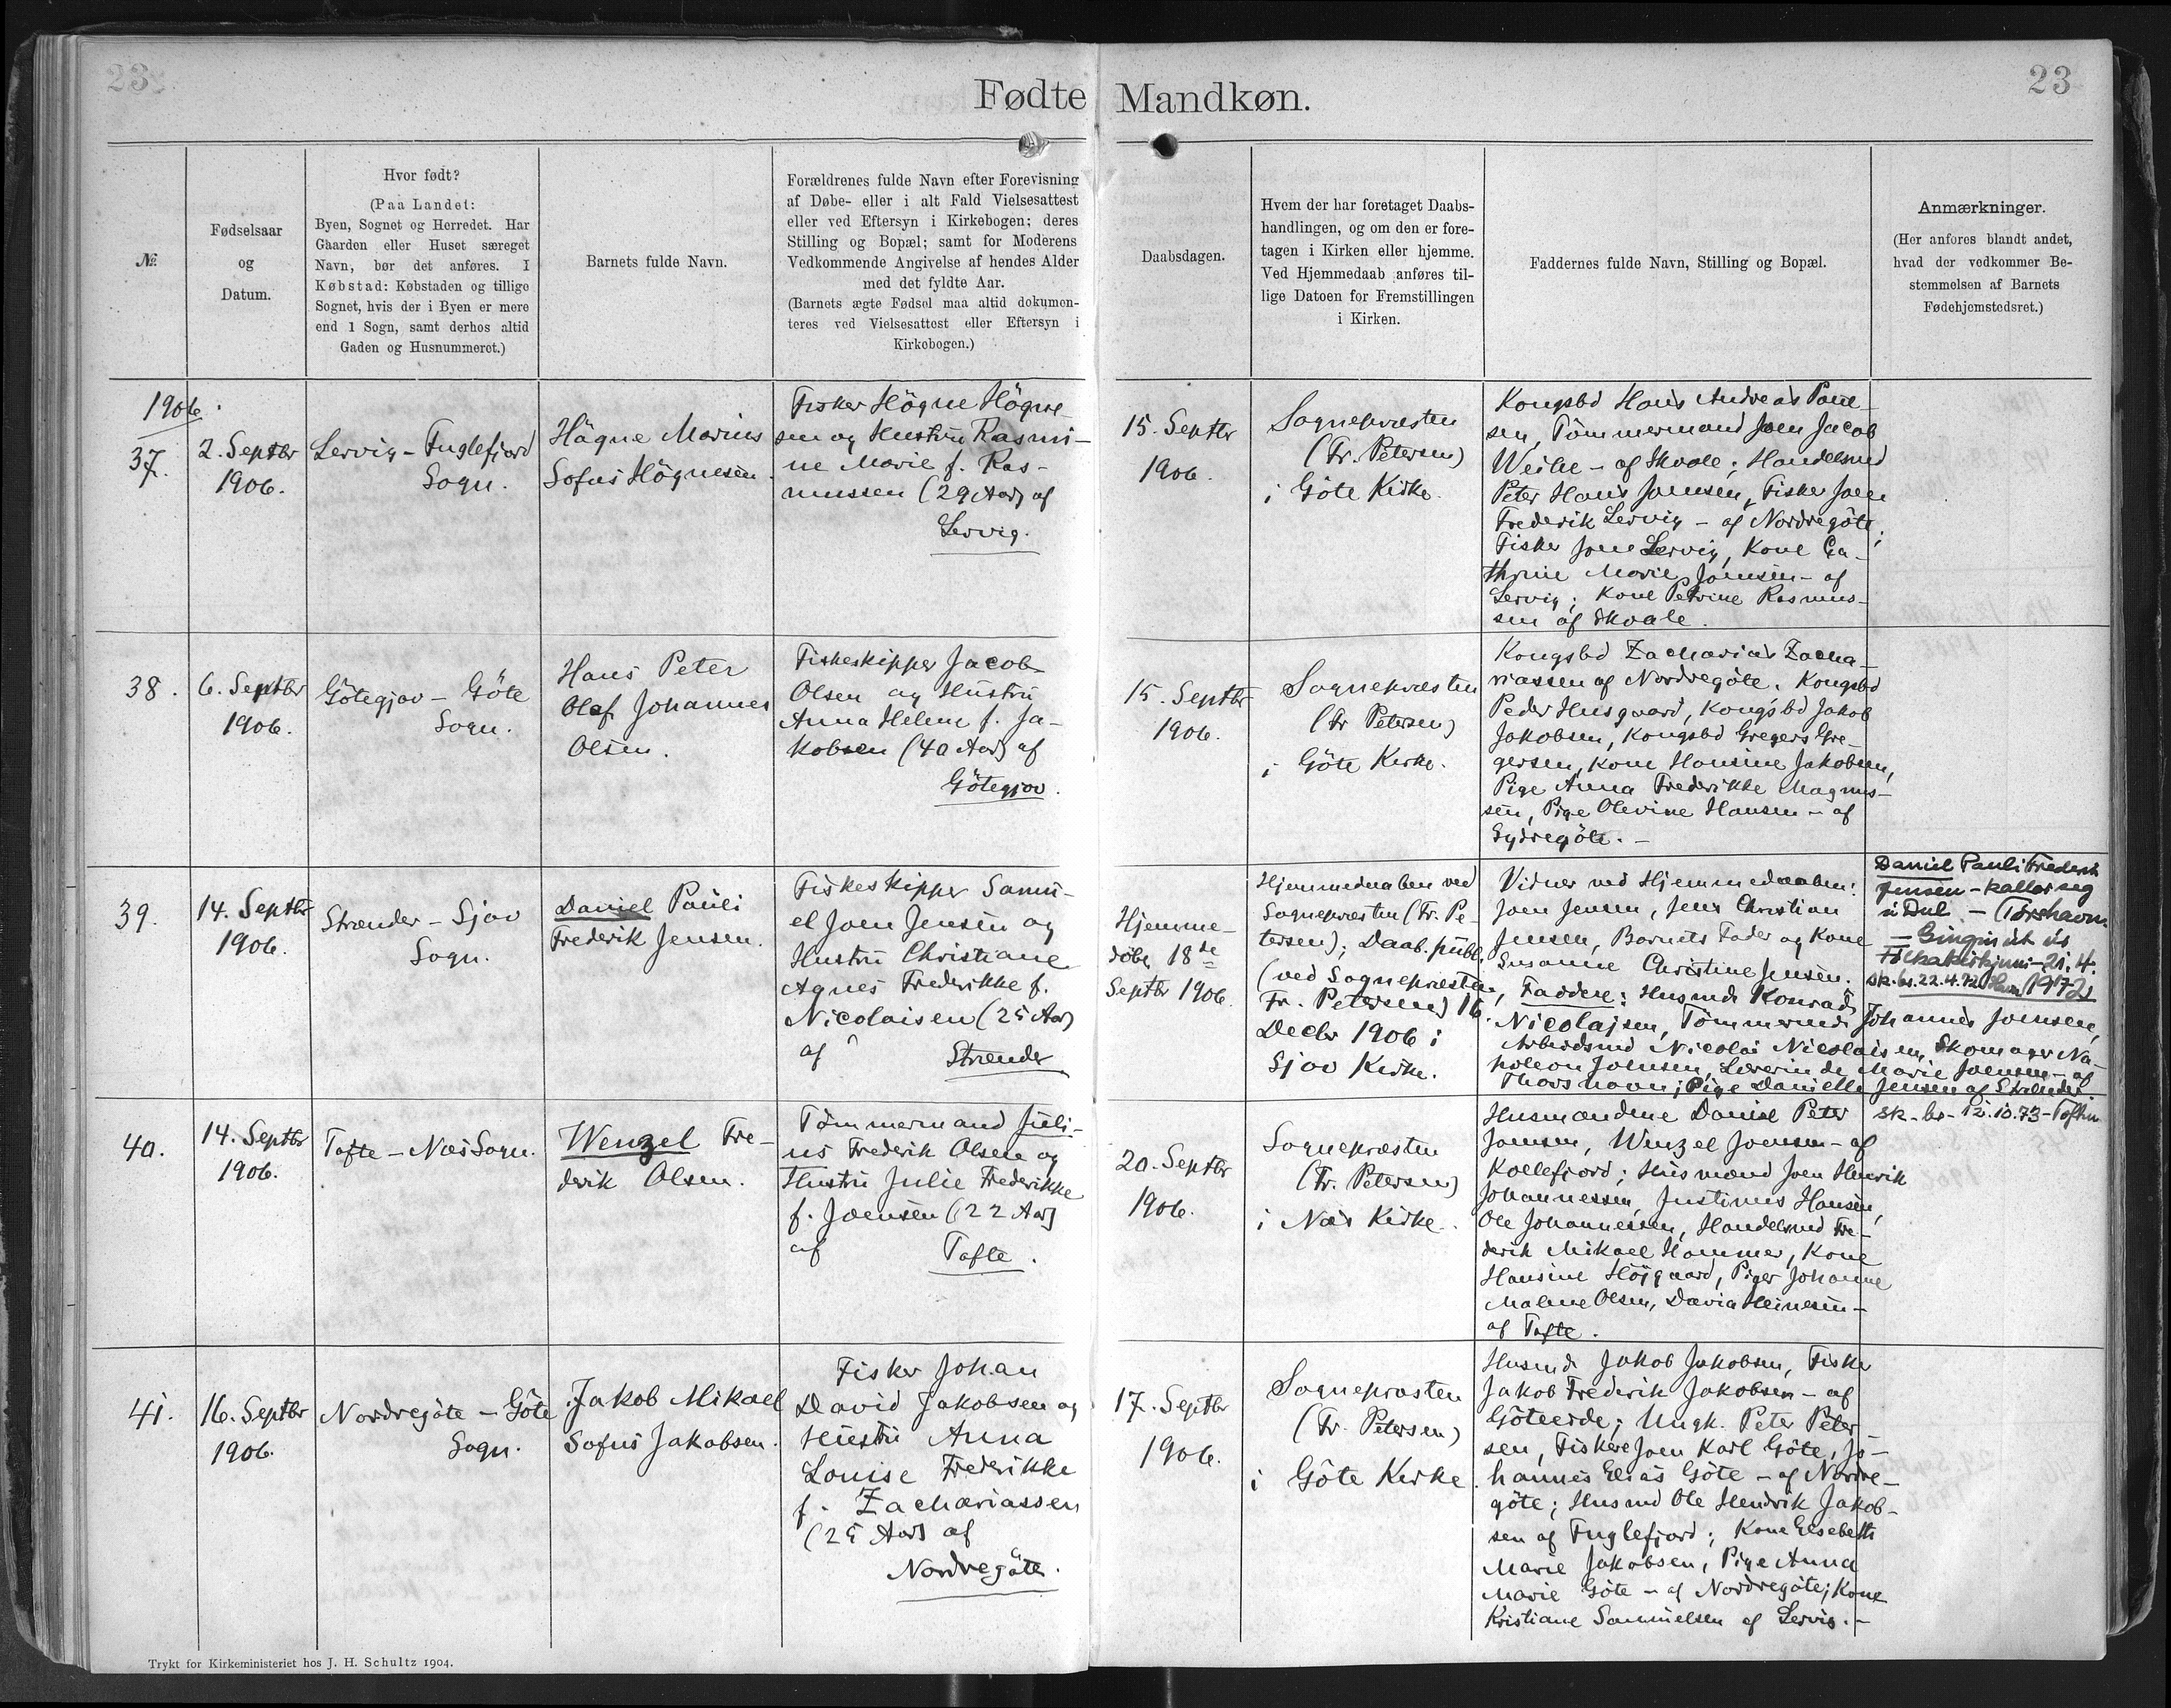 23
23
Fødte Mandkøn.
№
Fødselsaar
og
Datum.
Hvor født?
(Paa Landet:
Byen, Sognet og Herredet. Har
Gaarden eller Huset særeget
Navn, bør det anføres. I
Købstad: Købstaden og tillige
Sognet, hvis der i Byen er mere
end 1 Sogn, samt derhos altid
Gaden og Husnummeret.)
Barnets fulde Navn.
Forældrenes fulde Navn efter Forevisning
af Døbe- eller i alt Fald Vielsesattest
eller ved Eftersyn i Kirkebogen; deres
Stilling og Bopæl; samt for Moderens
Vedkommende Angivelse af hendes Alder
med det fyldte Aar.
(Barnets ægte Fødsel maa altid dokumen-
teres ved Vielsesattest eller Eftersyn i
Kirkebogen.)
Daabsdagen.
Hvem der har foretaget Daabs-
handlingen, og om den er fore-
tagen i Kirken eller hjemme.
Ved Hjemmedaab anføres til-
lige Datoen for Fremstillingen
i Kirken.
Faddernes fulde Navn, Stilling og Bopæl.
Anmærkninger.
(Her anføres blandt andet,
hvad der vedkommer Be-
stemmelsen af Barnets
Fødehjemstedsret.)
1906.
37.
2. Septbr
1906.
Lervig - Fuglefjord
Sogn.
Högne Marius
Sofus Högnesen.
Fisker Högne Högne-
sen og Hustru Rasmi-
ne Marie f. Ras-
mussen (29 Aar) af
Lervig.
15. Septbr
1906.
Sognepræsten
(Fr. Petersen)
i Göte Kirke.
Kongsbd Hans Andreas Poul-
sen, Tömmermand Joen Jacob
Weihe - af Skaale; Handelsmd
Peter Hans Joensen, Fisker Joen
Frederik Lervig - af Nordregöte;
Fisker Joen Lervig, Kone Ca-
thrine Marie Joensen - af
Lervig; Kone Petrine Rasmus-
sen af Skaale.
38.
6. Septbr
1906.
Götegjov - Göte
Sogn.
Hans Peter
Olaf Johannes
Olsen.
Fiskeskipper Jacob
Olsen og Hustru
Anna Helene f. Ja-
kobsen (40 Aar) af
Götegjov.
15. Septbr
1906.
Sognepræsten
(Fr Petersen)
i Göte Kirke.
Kongsbd Zacharias Zacha-
riassen af Nordregöte. Kongsbd
Peder Husgaard, Kongsbd Jakob
Jakobsen, Kongsbd Gregers Gre-
gersen, Kone Hansine Jakobsen,
Pige Anna Frederikke Magnus-
sen, Pige Olevine Hansen - af
Sydregöte. -
39.
14. Septbr
1906.
Strænder - Sjov
Sogn.
Daniel Pauli
Frederik Jensen.
Fiskeskipper Samu-
el Joen Jensen og
Hustru Christiane
Agnes Frederikke f.
Nicolaisen (25 Aar)
af Strænder
Hjemme-
döbt 18de
Septbr 1906.
Hjemmedaaben ved
Sognepræsten (Fr. Pe-
tersen); Daab. publ.
(ved Sognepræsten
Fr. Petersen) 16.
Decbr 1906 i
Sjov Kirke.
Vidner ved Hjemmedaaben:
Joen Jensen, Jens Christian
Jensen, Barnets Fader og Kone
Susanne Christine Jensen.
Faddere: Husmd Konrad
Nicolajsen, Tömmermd Johannes Joensen,
Arbeidsmd Nicolai Nicolaisen, Skomager Na-
poleon Joensen, Lærerinde Marie Joensen - af
Thorshavn; Pige Danielle Jensen af Strænder.
Daniel Pauli Frederik
Jensen - kallar seg
í Dul - (Tórshavn.
- Gingin út úr
Fólkakirkjuni - 21. 4.
sk. br. 22.4.72 1972)
40.
14. Septbr
1906.
Tofte - Næs Sogn.
Wenzel Fre-
derik Olsen.
Tömmermand Juli-
us Frederik Olsen og
Hustru Julie Frederikke
f. Joensen (22 Aar)
af Tofte.
20. Septbr
1906.
Sognepræsten
(Fr. Petersen)
i Næs Kirke.
Husmændene Daniel Peter
Joensen, Wenzel Joensen - af
Kollefjord; Husmænd Joen Henrik
Johannessen, Justinus Hansen,
Ole Johannessen, Handelsmd Fre-
derik Mikael Hammer, Kone
Hansine Höjgaard, Piger Johanne
Malene Olsen, Davia Heinesen -
af Tofte.
sk-br- 12.10.73 - Toftir
41.
16. Septbr
1906.
Nordregöte - Göte
Sogn.
Jakob Mikael
Sofus Jakobsen.
Fisker Johan
David Jakobsen og
Hustru Anna
Louise Frederikke
f. Zachariassen
(25 Aar) af
Nordregöte.
17. Septbr
1906.
Sognepræsten
(Fr. Petersen)
i Göte Kirke.
Husmd Jakob Jakobsen, Fisker
Jakob Frederik Jakobsen - af
Göteeide; Ungk. Peter Peter-
sen, Fiskere Joen Karl Göte, Jo-
hannes Elias Göte - af Nordre-
göte; Husmd Ole Hendrik Jakob-
sen af Fuglefjord; Kone Elsebeth
Marie Jakobsen, Pige Anna
Marie Göte - af Nordregöte; Kone
Kristiane Samuelsen af Lervig. -
Trykt for Kirkeministeriet hos J. H. Schultz 1904.